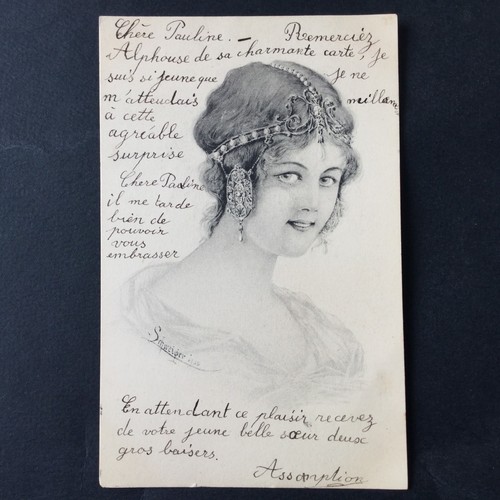 Chère Pauline. — Remerciéz
Alphouse de sa charmante carte, je
suis si jeune que je ne
m'attendais
à cette
agréable
surprise
Chere Pauline
il me tarde
bien de
pouvoir
vous
embrasser
En attendant ce plaisir recevez
de votre jeune belle sœur deux
gros baisers.
Assomption